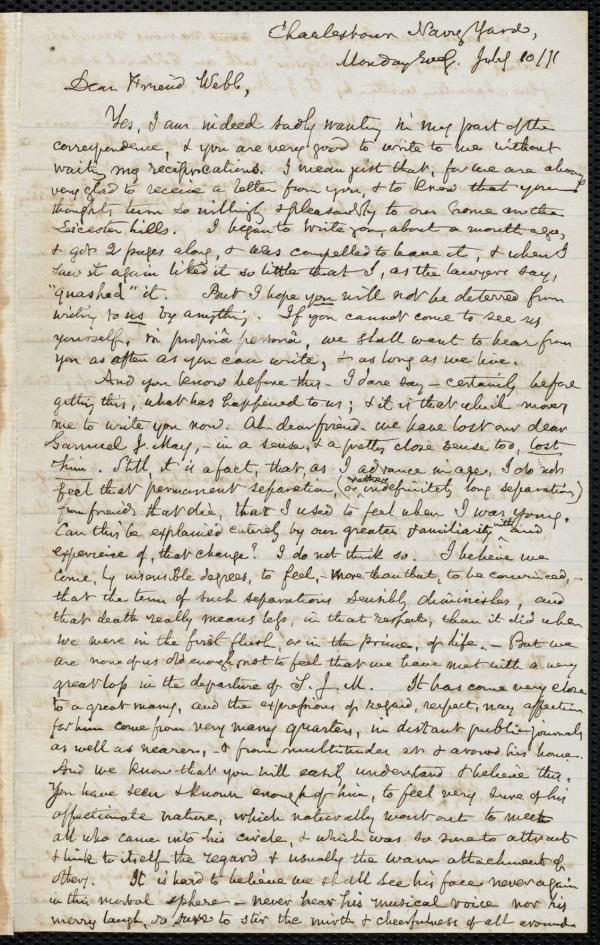 Charlestown Navy Yard,
Monday Evg. July 10/71
Dear Friend Webb,
Yes, I am indeed sadly wanting in my part of the
correspondence, & you are very good to write to me without
waiting my reciprocations. I mean just that, for we are always
very glad to receive a letter from you, & to know that your
thoughts turn so willingly & pleasantly to our home on the
Leicester hills. I began to write you, about a month ago,
& got 2 pages along, & was compelled to leave it, & when I
saw it again liked it so little that I, as the lawyers say,
"quashed" it. But I hope you will not be deterred from
writing to us by anything. If you cannot come to see us
yourself, in propriâ personâ, we shall want to hear from
you as often as you can write, & as long as we live.
And you know before this - I dare say - certainly before
getting this, what has happened to us; & it is that which moves
me to write you now. Ah dear friend. we have lost our dear
Samuel J. May, - in a sense, & a pretty close sense too, lost
him. Still, it is a fact, that, as I advance in age, I do not
feel that permanent separation, (or rather indefinitely long separation)
from friends that die, that I used to feel when I was young.
Can this be explained entirely by our greater familiarity with and
experience of, that change? I do not think so. I believe we
come, by insensible degrees, to feel, - more than that, to be convinced, -
that the term of such separations sensibly diminishes, and
that death really means less, in that respect, than it did when
we were in the first flush, or in the prime, of life. - But we
are none of us old enough not to feel that we have met with a very
great loss in the departure of S. J. M. It has come very close
to a great many, and the expressions of regard, respect, nay affection
for him come from very many quarters, in distant public journals
as well as nearer, - & from multitudes at & around his home.
And we know that you will easily understand & believe this.
You have seen & known enough of him, to feel very sure of his
affectionate nature, which naturally went out to meet
all who came into his circle, & which was so sure to attract
& link to itself the regard & usually the warm attachment of
others. It is hard to believe we shall see his face never again
in this mortal sphere - never hear his musical voice nor his
merry laugh, so sure to stir the mirth & cheerfulness of all around